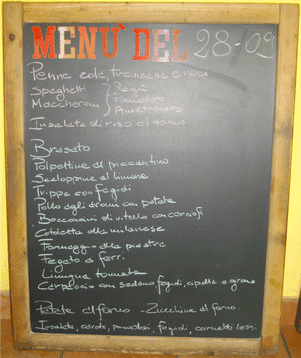 MENU' DEL 28-09
Penne
Spaghetti Ragù
Maccheroni Pomodoro
Amatriciana
Insalata di riso al tonno
Brasato
Polpettine al
Scaloppine al limone
Trippa con fagioli
Pollo agli aromi con patate
Bocconcini di vitello con carciofi
Cotoletta alla milanese
Formaggio alla piastra
Fegato ai ferri
Lingua tonnata
Carpaccio con sedano, fagioli, cipolla e grana
Patate al forno - Zucchine al forno
Insalata, carote, pomodori, fagioli, cornetti